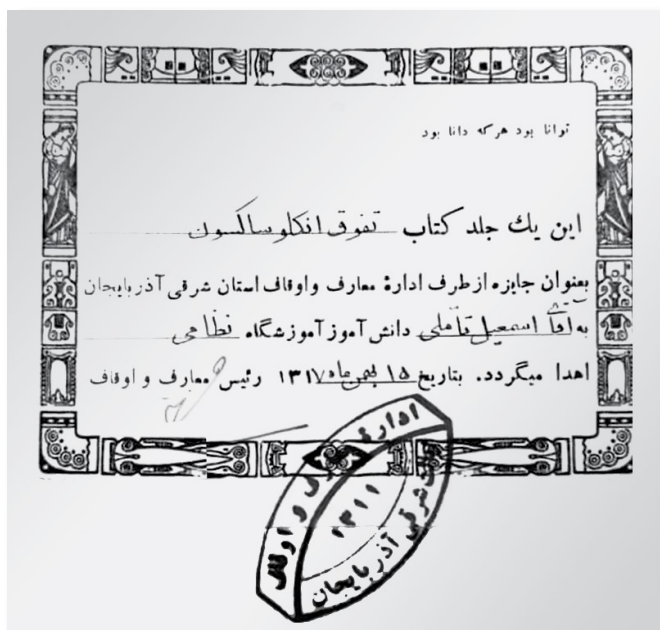 توانا بود هرکه دانا بود
این یك جلد کتاب تفوق انکلوساکسون
بعنوان جایزه از طرف ادارهٔ معارف و اوقاف استان شرقی آذربایجان
به آقای اسمعیل تأملی دانش آموز آموزشگاه نظامی
اهدا میگردد. بتاریخ ۱۵ بهمن ماه ۱۳۱۷ رئیس معارف و اوقاف
اداره معارف و اوقاف
۱۳۱۱
شرقی آذربایجان